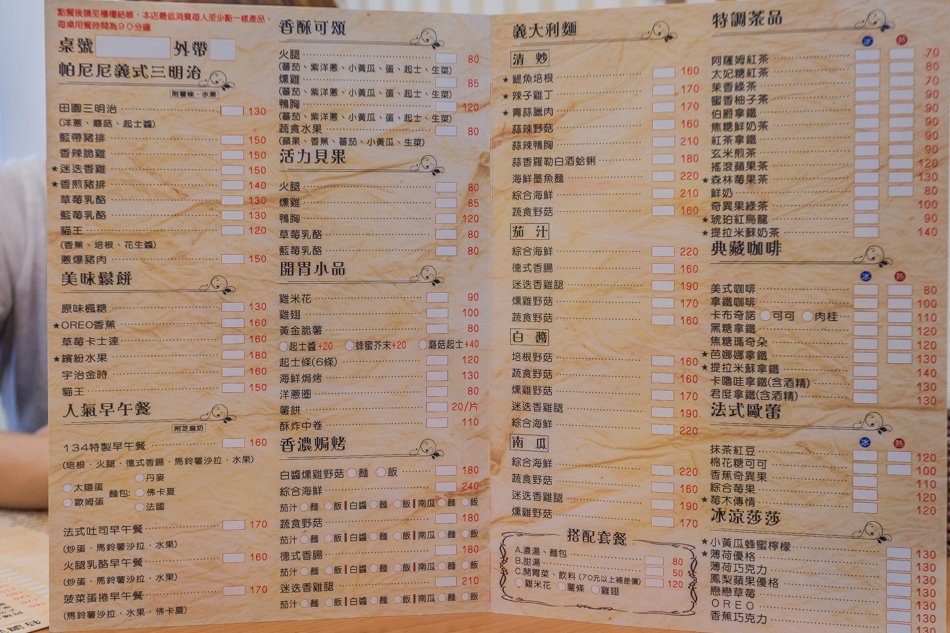 點餐後請至櫃檯結帳，本店最低消費每人至少點一樣產品，
每桌用餐時間為90分鐘
桌號 外帶
帕尼尼義式三明治
附薯條、水果
田園三明治 130
(洋蔥、蘑菇、起士醬)
藍帶豬排 150
香辣脆雞 150
★迷迭香雞 150
★香煎豬排 140
草莓乳酪 130
藍莓乳酪 130
貓王
(香蕉、培根、花生醬)
蔥爆豬肉 150
美味鬆餅
原味楓糖 130
★OREO香蕉 160
草莓卡士達 160
★繽紛水果 180
宇治金時 160
貓王 150
人氣早午餐
附芝麻奶
134特製早午餐 160
(培根・火腿・德式香腸・馬鈴薯沙拉・水果)
太陽蛋 歐姆蛋 麵包: 丹麥 佛卡夏 法國
法式吐司早午餐 170
(炒蛋・馬鈴薯沙拉・水果)
火腿乳酪早午餐 160
(炒蛋・馬鈴薯沙拉・水果)
菠菜蛋捲早午餐 170
(馬鈴薯沙拉・水果・佛卡夏)
香酥可頌
火腿 80
(蕃茄、紫洋蔥、小黃瓜、蛋、起士、生菜)
燻雞 85
(蕃茄、紫洋蔥、小黃瓜、蛋、起士、生菜)
鴨胸 120
(蕃茄、紫洋蔥、小黃瓜、蛋、起士、生菜)
蔬食水果 80
(蘋果、香蕉、蕃茄、小黃瓜、生菜)
活力貝果
火腿 80
燻雞 85
鴨胸 120
草莓乳酪 80
藍莓乳酪 80
開胃小品
雞米花 90
雞翅 100
黃金脆薯 80
起士醬+20 蜂蜜芥末+20 蘑菇起士+40
起士條(6條) 120
海鮮焗烤 130
洋蔥圈 80
薯餅 20/片
酥炸中卷 110
香濃焗烤
白醬燻雞野菇 麵 飯 180
綜合海鮮 240
茄汁 麵 飯 | 白醬 麵 飯 | 南瓜 麵 飯
蔬食野菇 180
茄汁 麵 飯 | 白醬 麵 飯 | 南瓜 麵 飯
德式香腸 180
茄汁 麵 飯 | 白醬 麵 飯 | 南瓜 麵 飯
迷迭香雞腿 210
茄汁 麵 飯 | 白醬 麵 飯 | 南瓜 麵 飯
義大利麵
清炒
★鯷魚培根 160
★辣子雞丁 170
★青蒜臘肉 170
蒜辣野菇 160
蒜辣鴨胸 210
蒜香羅勒白酒蛤蜊 180
海鮮墨魚麵 220
綜合海鮮 210
蔬食野菇 160
茄汁
綜合海鮮 220
德式香腸 160
迷迭香雞腿 190
燻雞野菇 170
蔬食野菇 160
白醬
培根野菇 160
蔬食野菇 160
燻雞野菇 170
迷迭香雞腿 190
綜合海鮮 220
南瓜
綜合海鮮 220
蔬食野菇 160
迷迭香雞腿 190
燻雞野菇 170
搭配套餐
A.濃湯、麵包 80
B.甜湯 50
C.開胃菜、飲料(70元以上補差價) 120
雞米花 薯條 雞翅
特調茶品
冰 熱
阿薩姆紅茶 70
太妃糖紅茶 80
茉香綠茶 70
蜜香柚子茶 90
伯爵拿鐵 90
焦糖鮮奶茶 90
紅茶拿鐵 90
玄米煎茶 90
搖滾蘋果茶 120
★森林莓果茶 130
鮮奶 80
奇異果綠茶 100
★琥珀紅烏龍 90
★提拉米穌奶茶 140
典藏咖啡
冰 熱
美式咖啡 80
拿鐵咖啡 100
卡布奇諾 可可 肉桂 110
黑糖拿鐵 120
焦糖瑪奇朵 120
★芭娜娜拿鐵 130
★提拉米穌拿鐵 140
卡嚕哇拿鐵(含酒精) 130
君度拿鐵(含酒精) 130
法式歐蕾
冰 熱
抹茶紅豆 120
棉花糖可可 100
香蕉奇異果 110
綜合莓果 120
★莓木傳情 120
冰涼莎莎
★小黃瓜蜂蜜檸檬 130
★薄荷優格 130
薄荷巧克力 130
鳳梨蘋果優格 130
戀戀草莓 130
OREO 130
香蕉巧克力 130